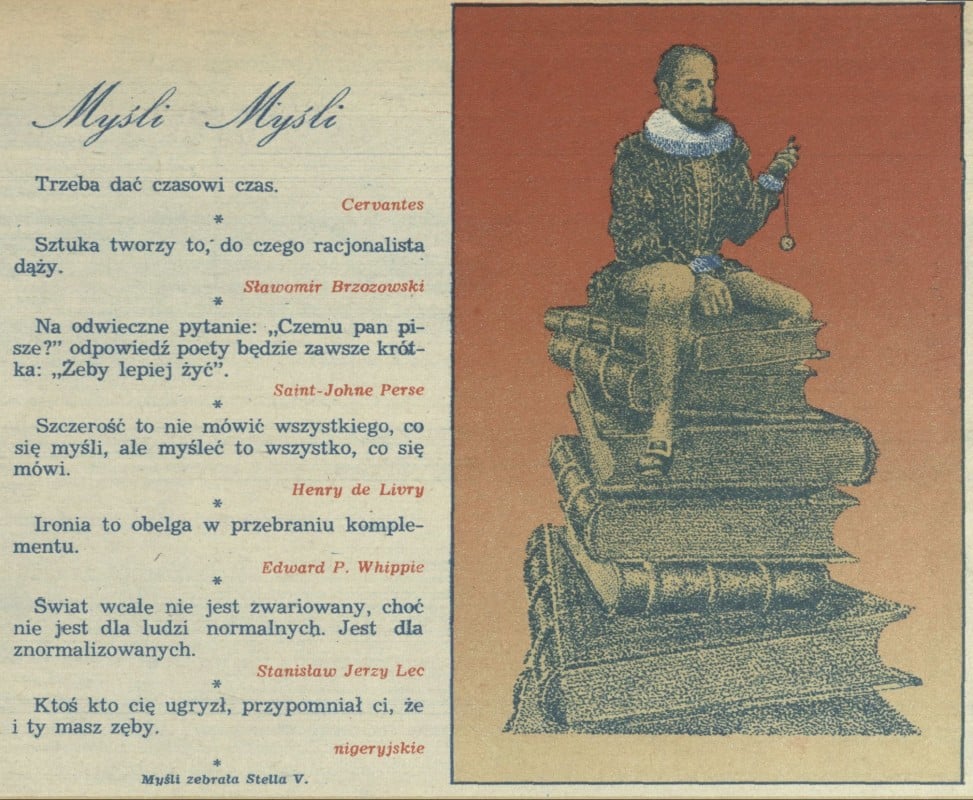 Myśli Myśli
Trzeba dać czasowi czas.
Cervantes
*
Sztuka tworzy to, do czego racjonalista
dąży.
Sławomir Brzozowski
*
Na odwieczne pytanie: „Czemu pan pi-
sze?” odpowiedź poety będzie zawsze krót-
ka: „Żeby lepiej żyć”.
Saint-Johne Perse
*
Szczerość to nie mówić wszystkiego, co
się myśli, ale myśleć to wszystko, co się
mówi.
Henry de Livry
*
Ironia to obelga w przebraniu komple-
mentu.
Edward P. Whippie
*
Świat wcale nie jest zwariowany, choć
nie jest dla ludzi normalnych. Jest dla
znormalizowanych.
Stanisław Jerzy Lec
*
Ktoś kto cię ugryzł, przypomniał ci, że
i ty masz zęby.
nigeryjskie
*
Myśli zebrała Stella V.